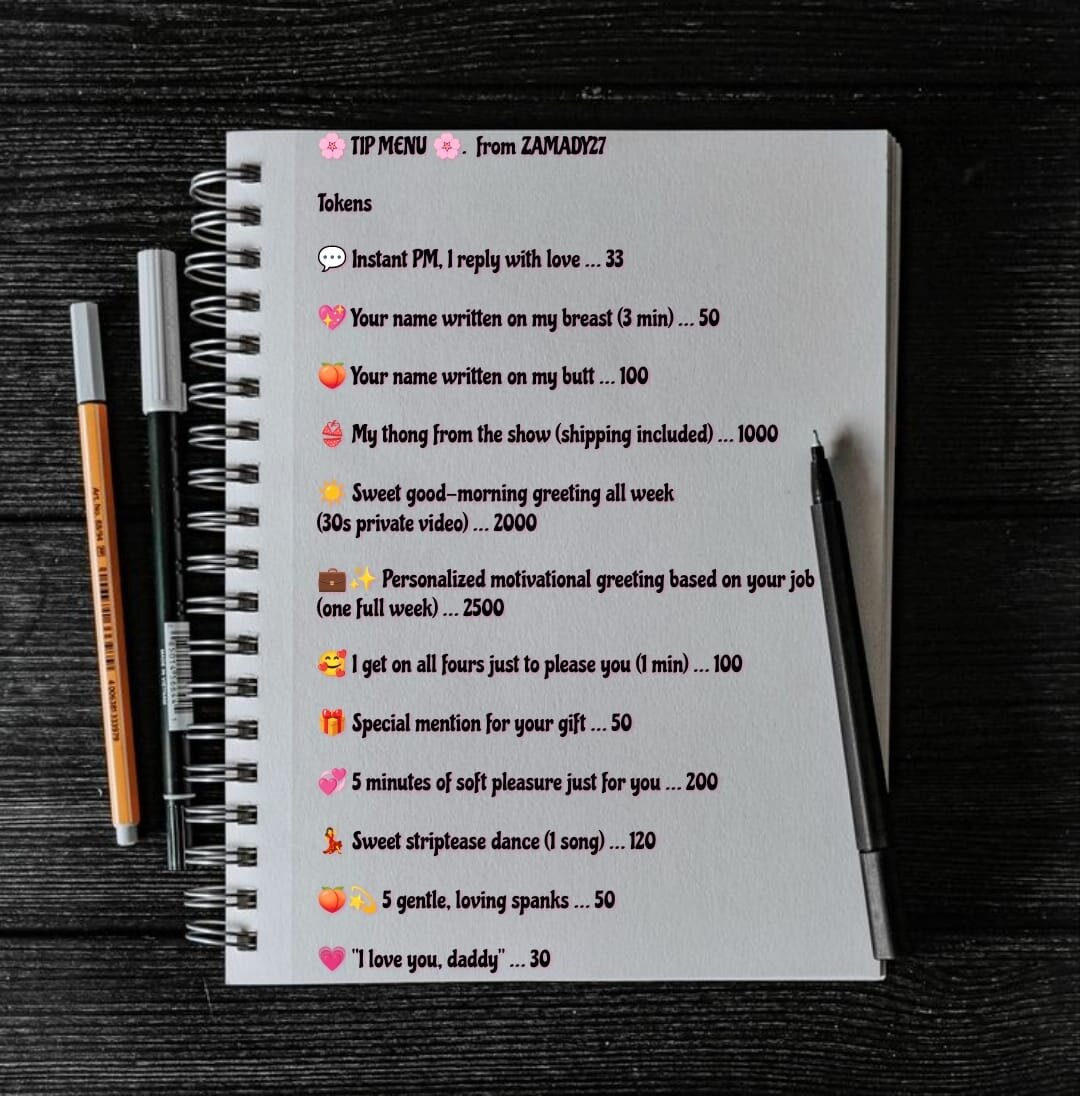 🌸 TIP MENU 🌸. from ZAMADY27
Tokens
💬 Instant PM, I reply with love ... 33
💖 Your name written on my breast (3 min) ... 50
🍑 Your name written on my butt ... 100
👙 My thong from the show (shipping included) ... 1000
☀️ Sweet good-morning greeting all week
(30s private video) ... 2000
💼✨ Personalized motivational greeting based on your job
(one full week) ... 2500
🥰 I get on all fours just to please you (1 min) ... 100
🎁 Special mention for your gift ... 50
💞 5 minutes of soft pleasure just for you ... 200
💃 Sweet striptease dance (1 song) ... 120
🍑💫 5 gentle, loving spanks ... 50
💗 "I love you, daddy" ... 30
Art. No. 88/94